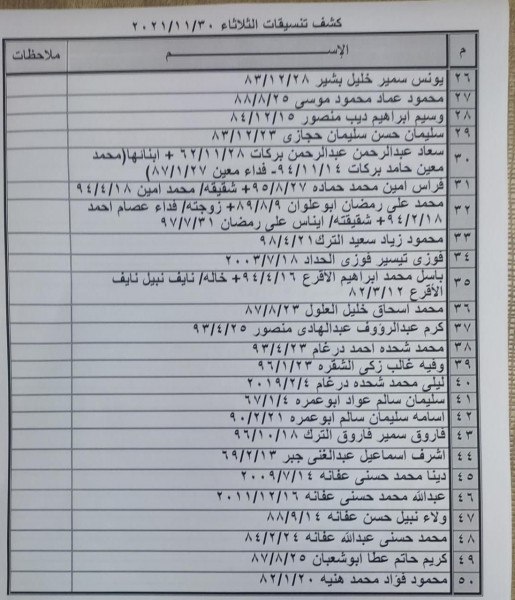 كشف تنسيقات الثلاثاء ٢٠٢١/١١/٣٠
م الإســـــــم ملاحظات
٢٦ يونس سمير خليل بشير ٨٣/١٢/٢٨
٢٧ محمود عماد محمود موسى ٨٨/٨/٢٥
٢٨ وسيم ابراهيم ديب منصور ٨٤/١٢/١٥
٢٩ سليمان حسن سليمان حجازى ٨٣/١٢/٢٣
٣٠ سعاد عبدالرحمن عبدالرحمن بركات ٦٢/١١/٢٨ + ابنائها(محمد
معين حامد بركات ٩٤/١١/١٤- فداء معين ٨٧/١/٢٧)
٣١ فراس امين محمد حماده ٩٥/٨/٢٧+ شقيقه/ محمد امين ٩٤/٤/١٨
٣٢ محمد على رمضان ابوعلوان ٨٩/٨/٩+ زوجته/ فداء عصام احمد
٩٤/٢/١٨+ شقيقته/ ايناس على رمضان ٩٧/٧/٣١
٣٣ محمود زياد سعيد الترك٩٨/٤/٢١
٣٤ فوزى تيسير فوزى الحداد ٢٠٠٣/٧/١٨
٣٥ باسل محمد ابراهيم الأقرع ٩٤/٤/١٦+ خاله/ نايف نبيل نايف
الأقرع ٨٢/٣/١٢
٣٦ محمد اسحاق خليل العلول ٨٧/٨/٢٣
٣٧ كرم عبدالرؤوف عبدالهادى منصور ٩٣/٤/٢٥
٣٨ محمد شحده احمد درغام ٩٣/٤/٢٣
٣٩ وفيه غالب زكى الشقره ٩٦/١/٢٣
٤٠ ليلى محمد شحده درغام ٢٠١٩/٢/٤
٤١ سليمان سالم عواد ابوعمره ٦٧/١/٤
٤٢ اسامه سليمان سالم ابوعمره ٩٠/٢/٢١
٤٣ فاروق سمير فاروق الترك ٩٦/١٠/١٨
٤٤ اشرف اسماعيل عبدالغنى جبر ٦٩/٢/١٣
٤٥ دينا محمد حسنى عفانه ٢٠٠٩/٧/١٤
٤٦ عبدالله محمد حسنى عفانه ٢٠١١/١٢/١٦
٤٧ ولاء نبيل حسن عفانه ٨٨/٩/١٤
٤٨ محمد حسنى عبدالله عفانه ٨٤/٢/٢٤
٤٩ كريم حاتم عطا ابوشعبان ٨٧/٨/٢٥
٥٠ محمود فؤاد محمد هنيه ٨٢/١/٢٠